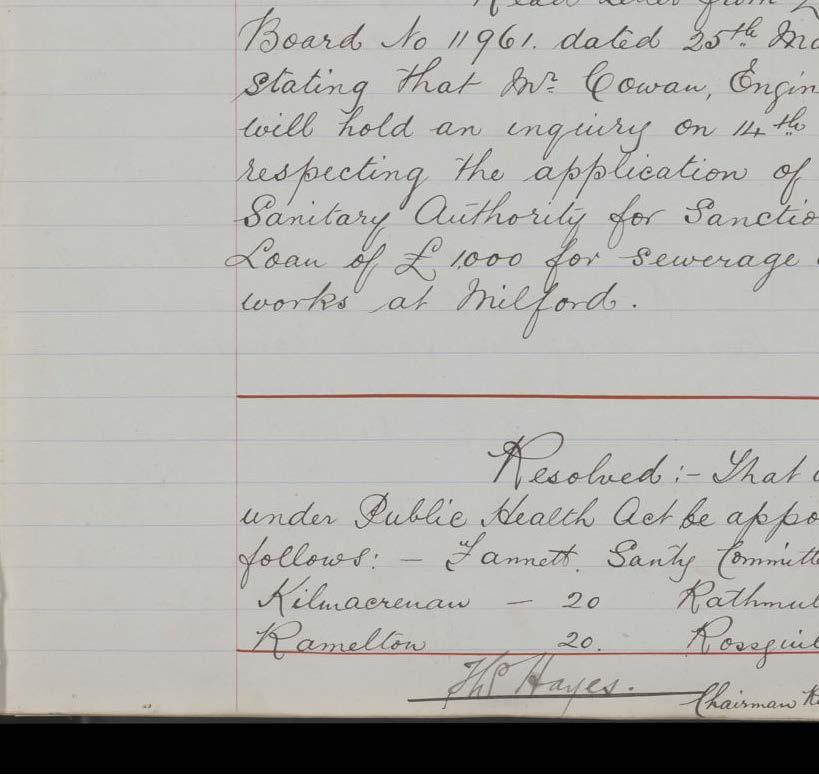 Read Letter from
Board No 11961. dated 25th Ma
stating that Mr. Cowan, Engin
will hold an inquiry on 14th
respecting the application of
Sanitary Authority for Sanctio
Loan of £1000 for sewerage
works at Milford.
Resolved:- That
under Public Health Act be appo
follows:- Fannett. Santy Committe
Kilmacrenan - 20 Rathmul
Ramelton 20. Rossguil
Thos Hayes.
Chairman